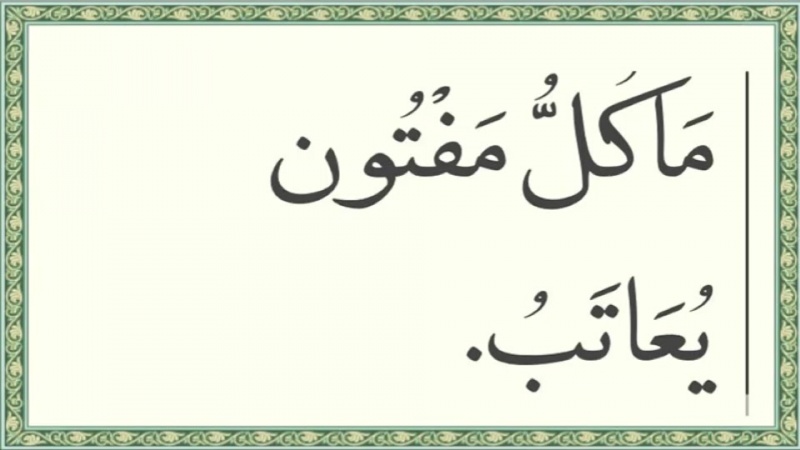 مَا كَلُّ مَفْتُون
يُعَاتَبُ.